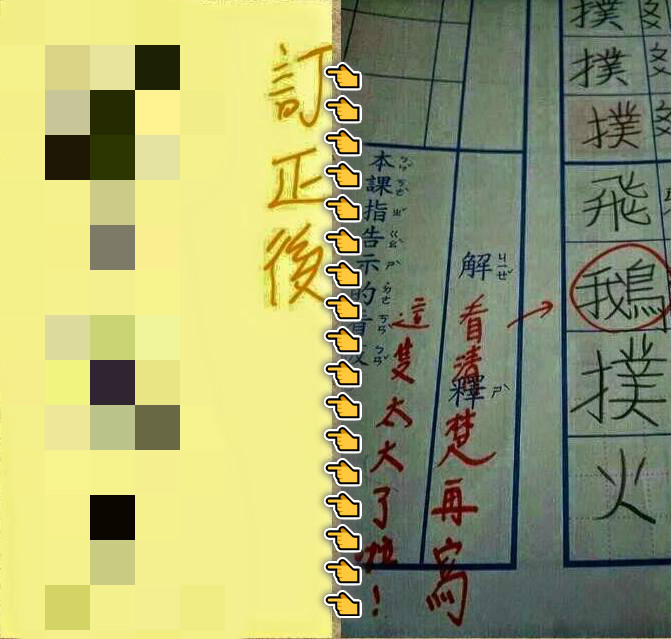 訂正後
撲撲撲飛鵝撲火
解釋
看清楚再寫
這隻太大了啦!
本課指告示的